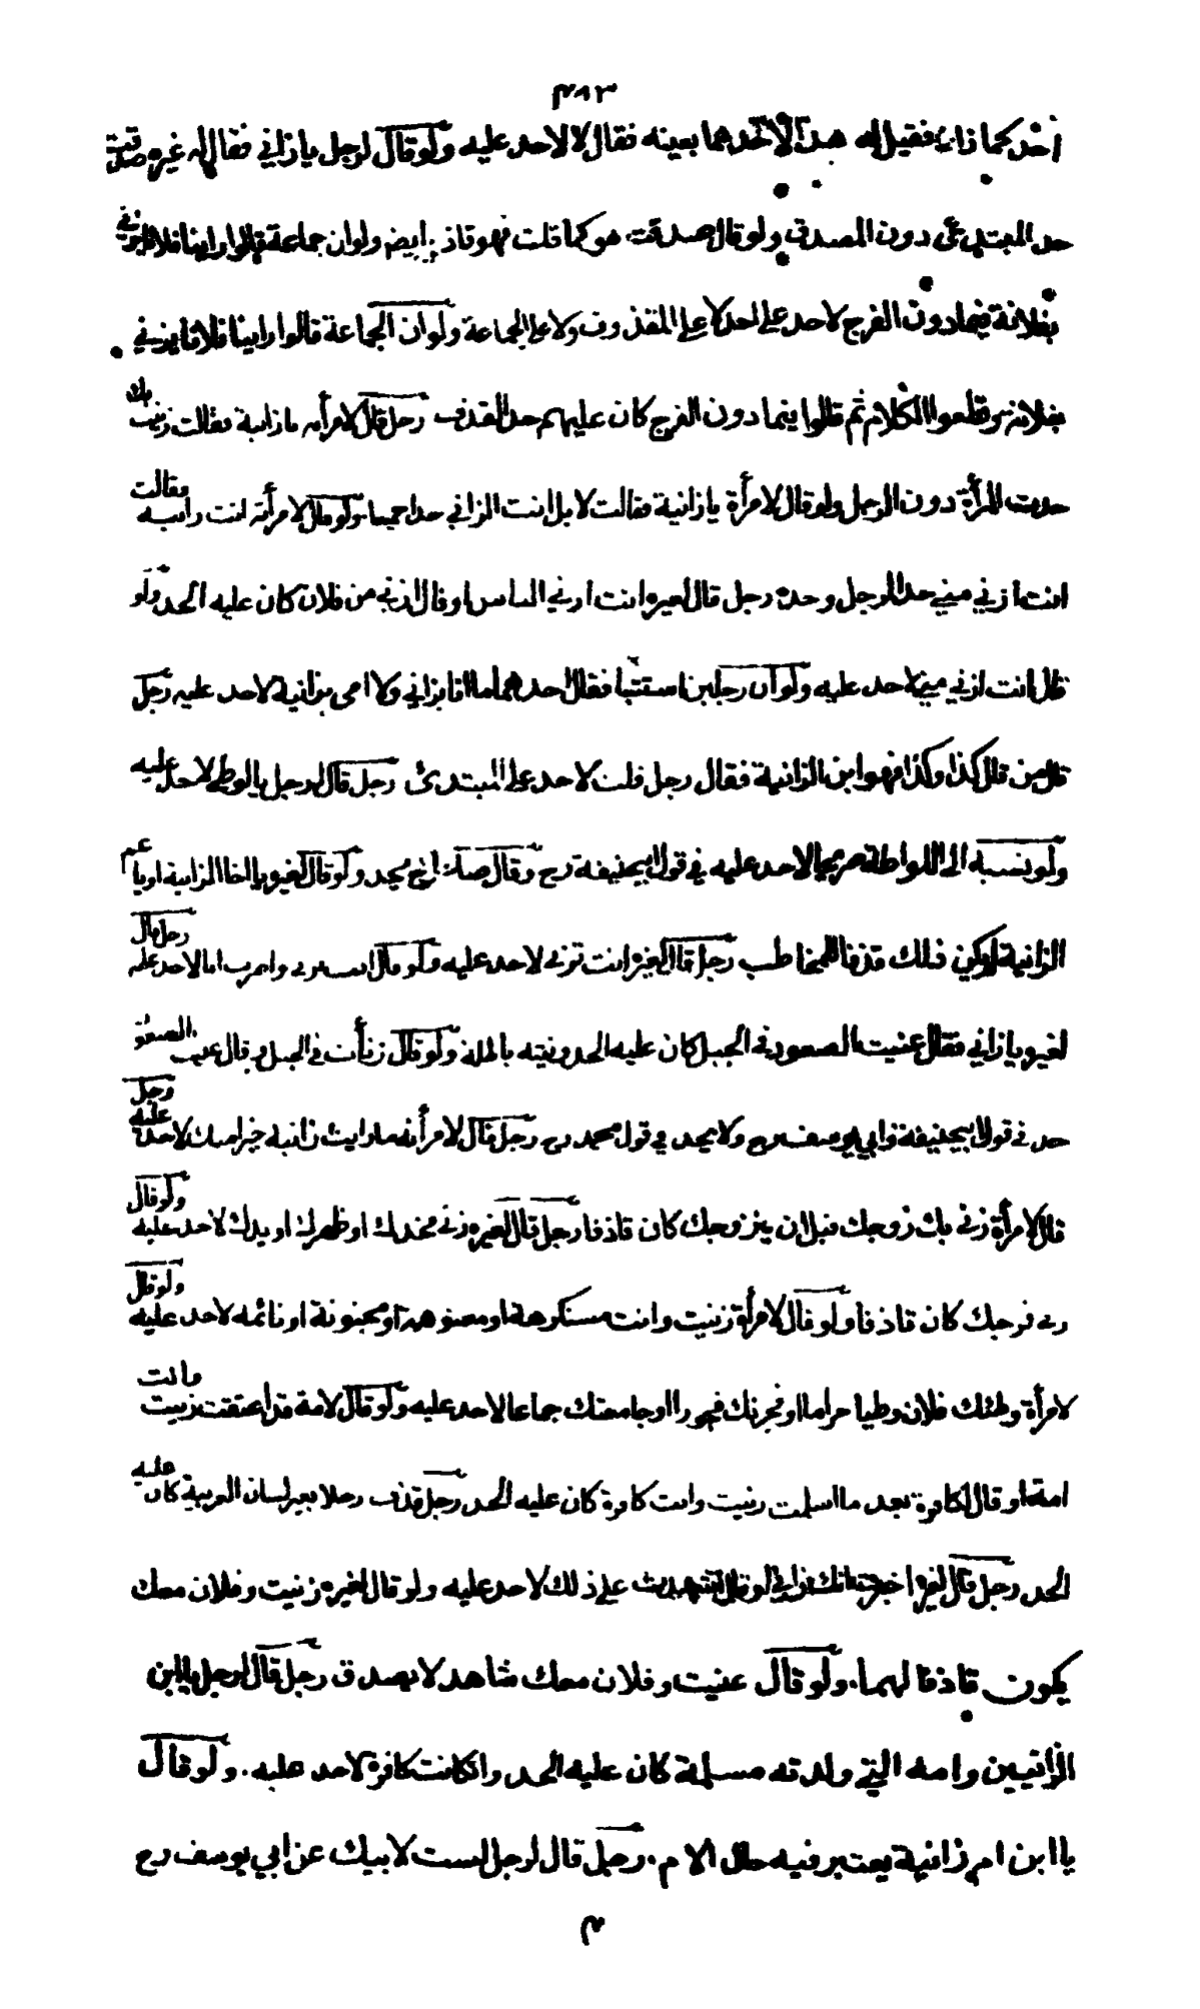 ٤٨٣
احدكما زان فقيل له هذا لاحدهما بعينه فقال لا لاحد عليه ولو قال لرجل يا زاني فقال له غيره صدقت
حد المبتدي دون المصدق ولو قال صدقت هو كما قلت فهو قاذف ايضا ولو ان جماعة قالوا راينا فلانا يزني
بفلانة فيما دون الفرج لا حد على احد لا على المقذوف ولا على الجماعة ولو ان الجماعة قالوا راينا فلانا يزني
بفلانة وقطعوا الكلام ثم قالوا فيما دون الفرج كان عليهم حد القذف رجل قال لامرأته يا زانية فقالت زنيت بك
حدت المرأة دون الرجل ولو قال لامرأة يا زانية فقالت لا بل انت الزاني حدا جميعا ولو قال لامرأته انت زانية فقالت
انت ازني مني حد الرجل وحده رجل قال لغيره انت ازني الناس او قال ازني من فلان كان عليه الحد ولو
قال انت ازني مني لا حد عليه ولو ان رجلين استبا فقال احدهما ما انا بزاني ولا امي بزانية لا حد عليه رجل
قال من قال كذا وكذا فهو ابن الزانية فقال رجل قلت لا حد على المبتدئ رجل قال لرجل يا لوطي لا حد عليه
ولو نسبه الى اللواطة صريحا لا حد عليه في قول ابي حنيفة رح وقال صاحباه يحد ولو قال لغيره يا اخا الزانية او يا عم
الزانية لم يكن ذلك قذفا للمخاطب رجل قال لغيره انت تزني لا حد عليه ولو قال انت تزني واضرب انا لا حد عليه رجل قال
لغيره يا زاني فقال عنيت الصعود في الجبل كان عليه الحد ونيته باطلة ولو قال زنأت في الجبل وقال عنيت الصعود
حد في قول ابي حنيفة وابي يوسف رح ولا يحد في قول محمد رح رجل قال لامرأته ما رايت زانية خيرا منك لا حد عليه رجل
قال لامرأة زني بك زوجك قبل ان يتزوجك كان قاذفا رجل قال لغيره زنى فخذك او ظهرك او يدك لا حد عليه ولو قال
زنى فرجك كان قاذفا ولو قال لامرأة زنيت وانت مستكرهة او معتوهة او مجنونة او نائمة لا حد عليه ولو قال
لامرأة وطئك فلان وطيا حراما او فجر بك فجورا او جامعك جماعا لا حد عليه ولو قال لامة قد اعتقت زنيت وانت
امة او قال لكافرة بعد ما اسلمت زنيت وانت كافرة كان عليه الحد رجل قذف رجلا بغير لسان العربية كان عليه
الحد رجل قال لغيره اخبرت انك زاني او قال اشهدت على ذلك لا حد عليه ولو قال لغيره زنيت وفلان معك
يكون قاذفا لهما. ولو قال عنيت وفلان معك شاهد لا يصدق رجل قال لرجل يا ابن
الزانيين وامه التي ولدته مسلمة كان عليه الحد وان كانت كافرة لا حد عليه. ولو قال
يا ابن ام زانية يعتبر فيه حال الام. رجل قال لرجل لست لابيك عن ابي يوسف رح
م